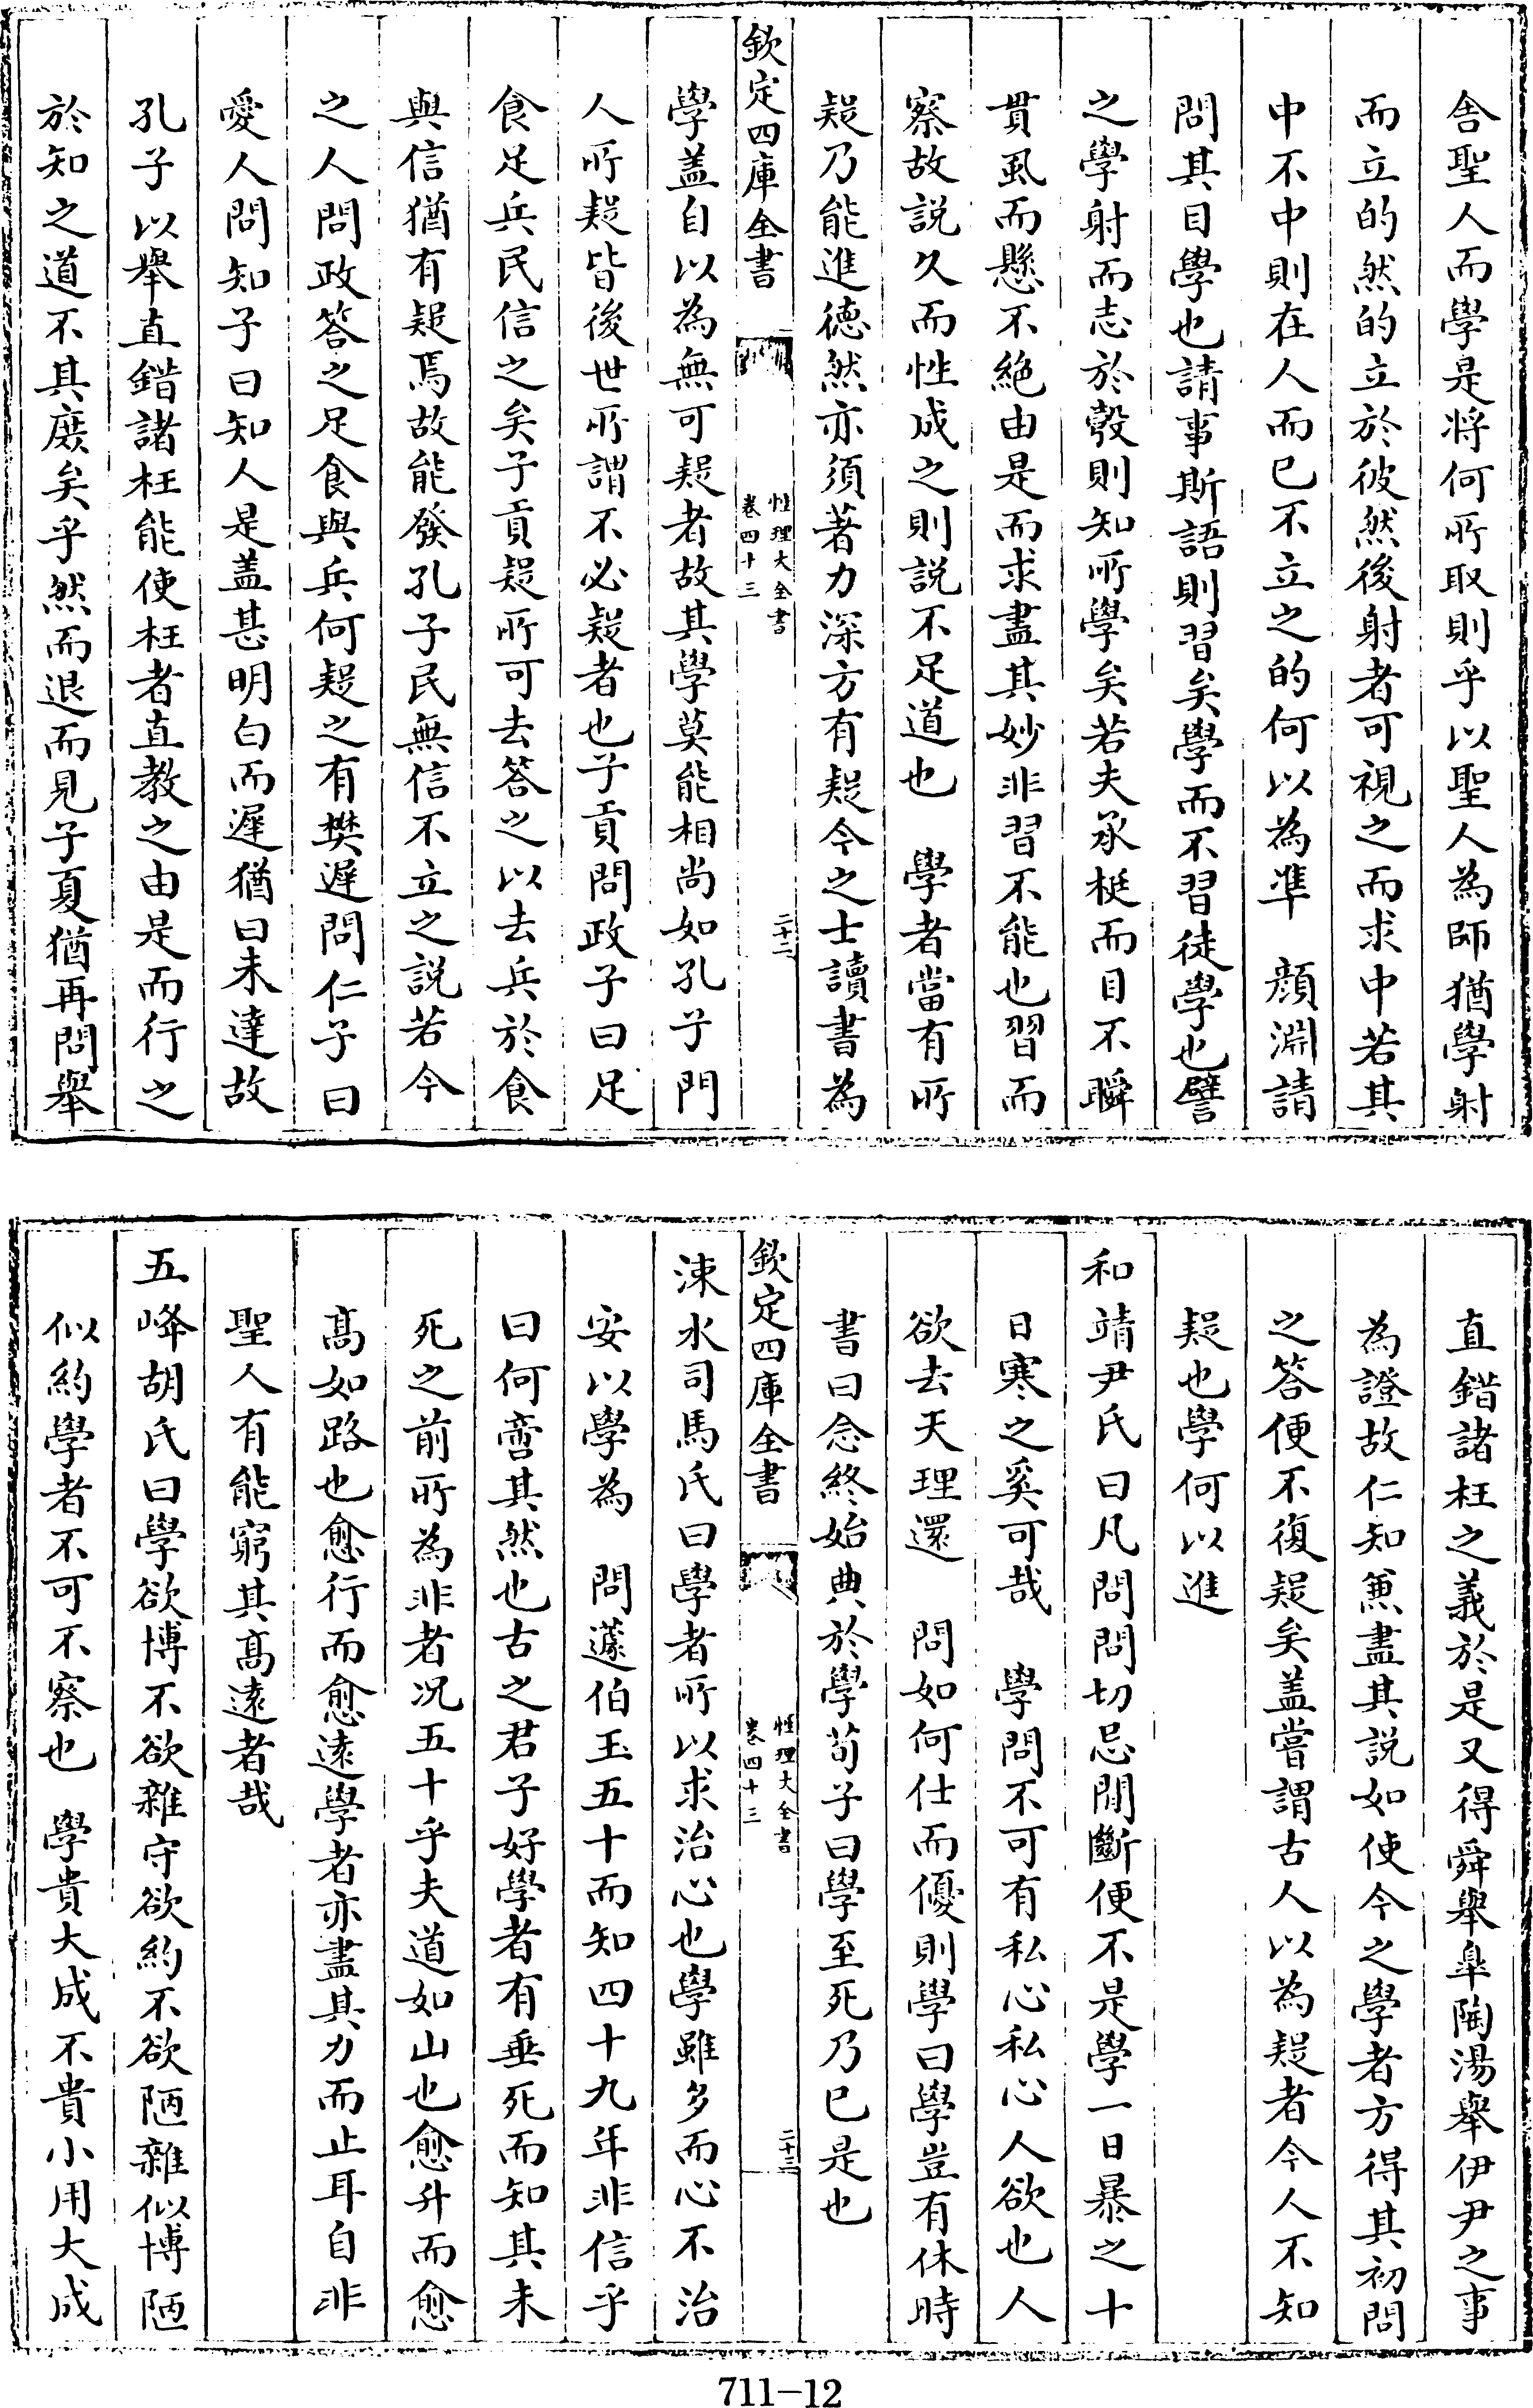 舎聖人而學是将何所取則乎以聖人為師猶學射
而立的然的立於彼然後射者可視之而求中若其
中不中則在人而已不立之的何以為凖　顔淵請
問其目學也請事斯語則習矣學而不習徒學也譬
之學射而志於彀則知所學矣若夫承梃而目不瞬
貫虱而懸不絶由是而求盡其妙非習不能也習而
察故説久而性成之則説不足道也　學者當有所
疑乃能進徳然亦須著力深方有疑今之士讀書為
欽定四庫全書
性理大全書
卷四十三
二十二
學盖自以為無可疑者故其學莫能相尚如孔子門
人所疑皆後世所謂不必疑者也子貢問政子曰足
食足兵民信之矣子貢疑所可去答之以去兵於食
與信猶有疑焉故能發孔子民無信不立之説若今
之人問政答之足食與兵何疑之有樊遲問仁子曰
愛人問知子曰知人是盖甚明白而遲猶曰未達故
孔子以舉直錯諸枉能使枉者直教之由是而行之
於知之道不其庶矣乎然而退而見子夏猶再問舉
直錯諸枉之義於是又得舜舉臯陶湯舉伊尹之事
為證故仁知兼盡其説如使今之學者方得其初問
之答便不復疑矣盖嘗謂古人以為疑者今人不知
疑也學何以進
和靖尹氏曰凡問問切忌間斷便不是學一日暴之十
日寒之奚可哉　學問不可有私心私心人欲也人
欲去天理還　問如何仕而優則學曰學豈有休時
書曰念終始典於學荀子曰學至死乃已是也
欽定四庫全書
性理大全書
卷四十三
二十三
涑水司馬氏曰學者所以求治心也學雖多而心不治
安以學為　問蘧伯玉五十而知四十九年非信乎
曰何啻其然也古之君子好學者有垂死而知其未
死之前所為非者况五十乎夫道如山也愈升而愈
髙如路也愈行而愈逺學者亦盡其力而止耳自非
聖人有能窮其髙逺者哉
五峰胡氏曰學欲博不欲雜守欲約不欲陋雜似博陋
似約學者不可不察也　學貴大成不貴小用大成
711-12